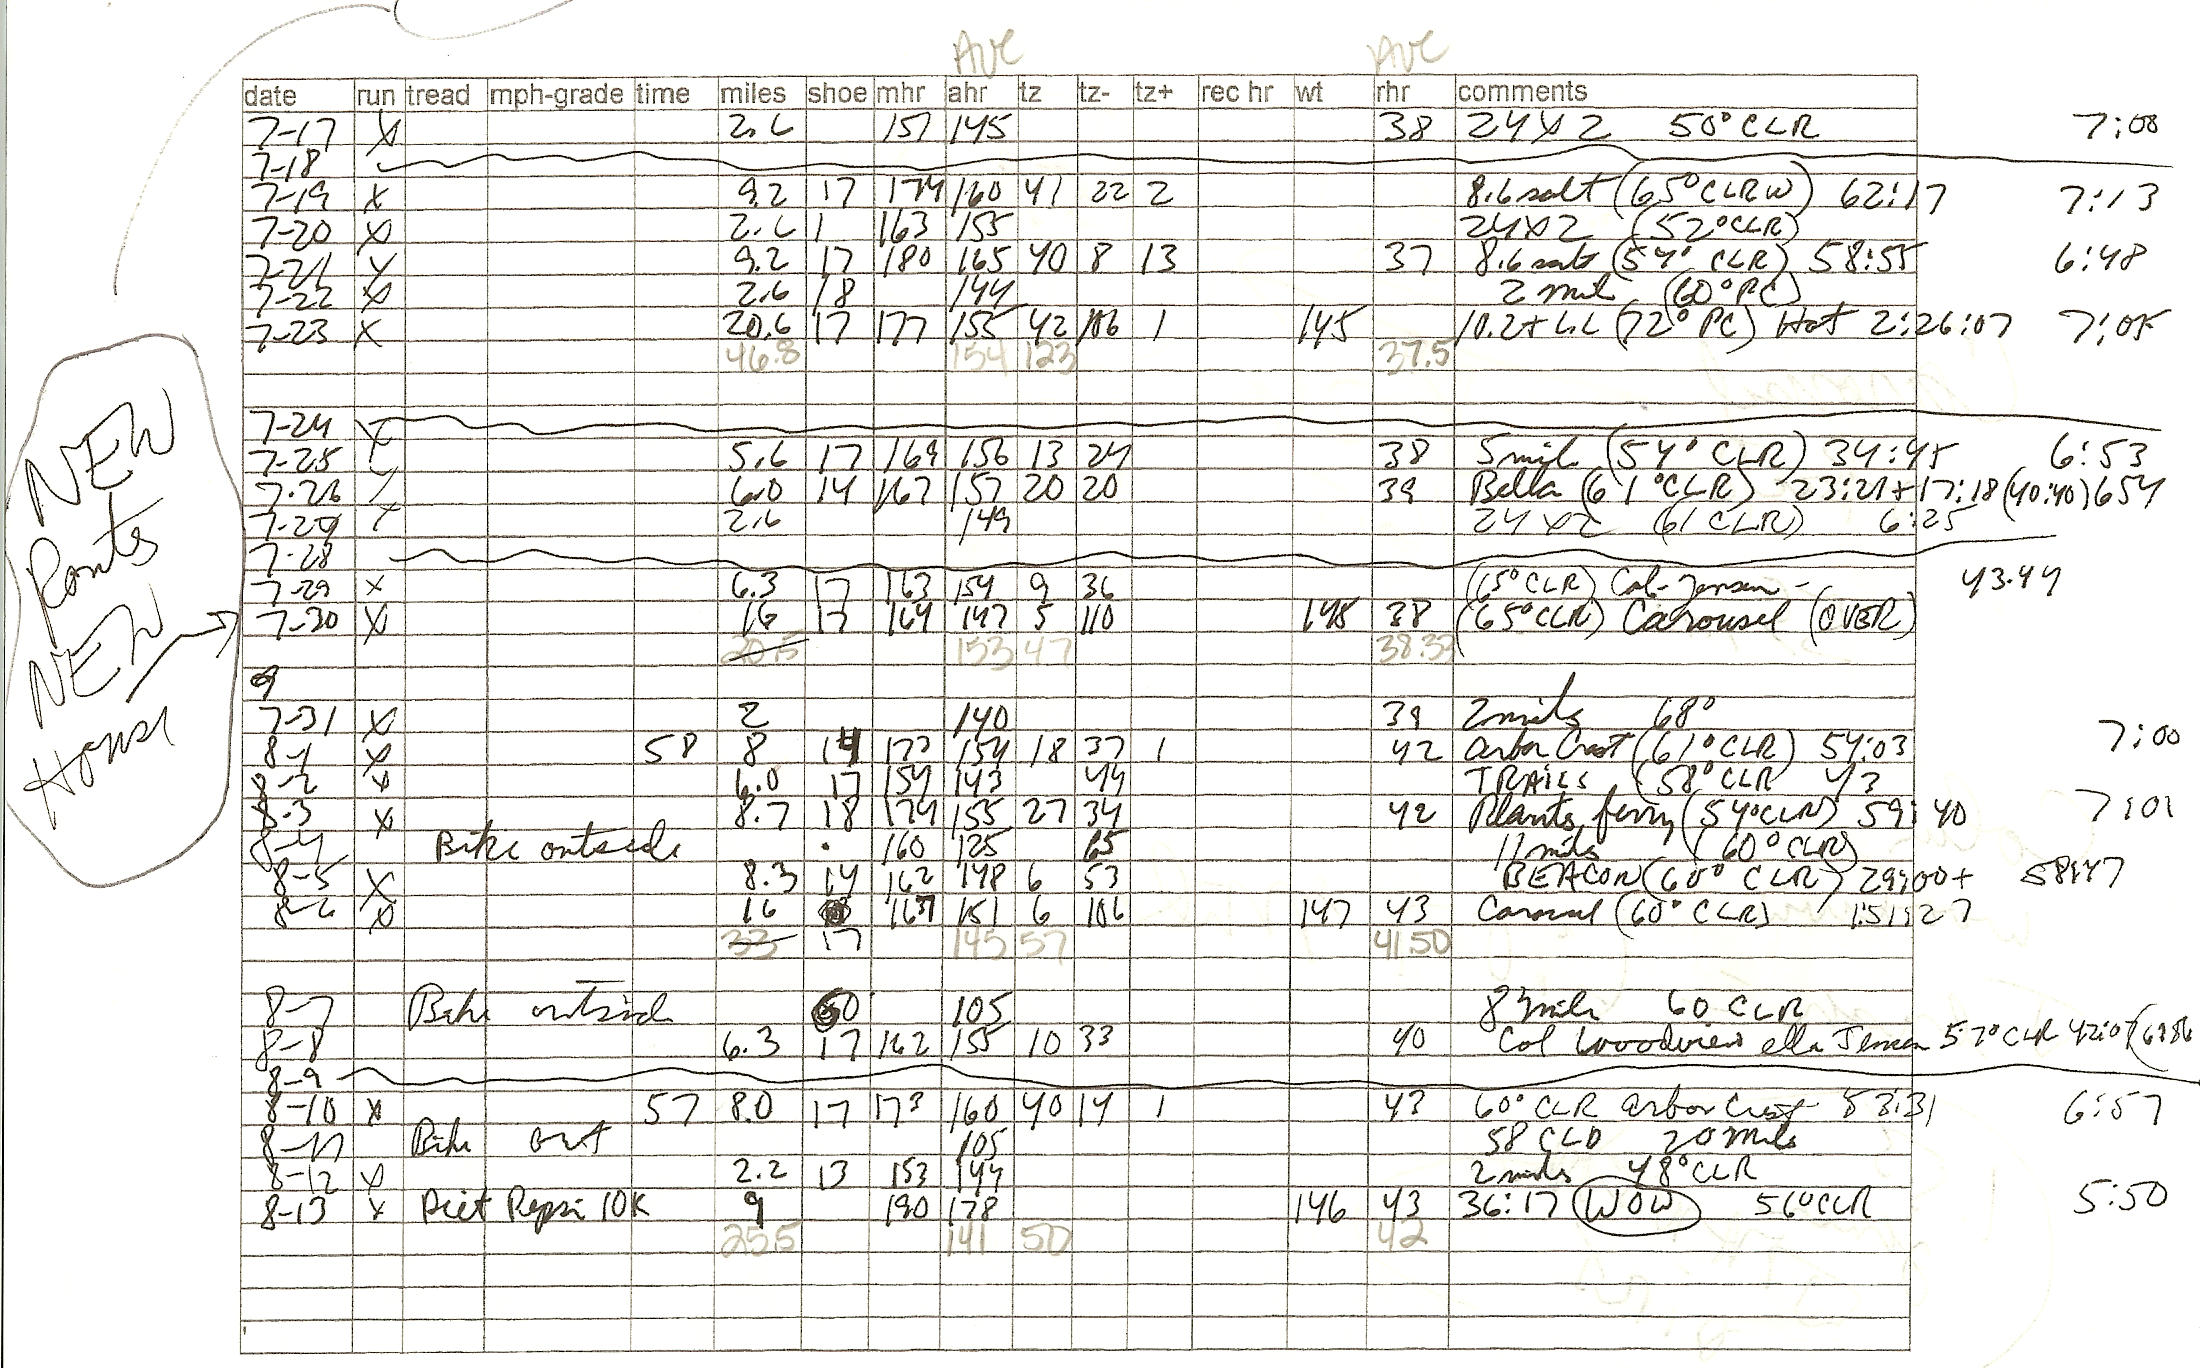 AVE AVE
date run tread mph-grade time miles shoe mhr ahr tz tz- tz+ rec hr wt rhr comments
7-17 X 2.6 151 145 38 24X2 50° CLR 7:00
7-18
7-19 X 9.2 17 174 160 41 22 2 8.6 salt (65° CLR W) 62:17 7:13
7-20 X 2.6 1 163 155 24X2 (52° CLR)
7-21 X 9.2 17 180 165 40 8 13 37 8.6 salt (54° CLR) 58:55 6:48
7-22 X 2.6 18 144 2 mile (60° PC)
7-23 X 20.6 17 177 155 42 106 1 145 (72° PC) Hot 2:26:07 7:05
46.8 154 123 37.5
7-24 X
7-25 5.6 17 169 156 13 24 38 5 mile (54° CLR) 34:45 6:53
7-26 6.0 14 167 157 20 20 39 Bella (61° CLR) 23:21+17:18 (40:40) 654
7-27 2.6 149 24X2 (61 CLR) 6:25
7-28
7-29 X 6.3 17 163 154 9 36 (65° CLR) Col-Jensen - 43.44
7-30 X 16 17 164 147 5 110 148 38 (65° CLR) Carousel (OVER)
20.5 153 47 38.33
7-31 X 2 140 39 2 miles 68°
8-1 X 58 8 14 173 154 18 37 1 42 arbor Crest (61° CLR) 54:03 7:00
8-2 X 6.0 17 154 143 44 TRAILS (58° CLR 43
8-3 X 8.7 18 174 155 27 34 42 Plants ferry (54° CLR) 59:40 7:01
8-4 Bike outside 160 125 65 11 miles (60° CLR)
8-5 X 8.3 14 162 148 6 53 BEACON (60° CLR) 29:00+ 58:47
8-6 X 16 151 6 106 147 43 Carousel (60° CLR) 1:51:27
33 17 145 57 41.50
8-7 Bike outside 105 60 CLR
8-8 6.3 17 162 155 10 33 40 Col Woodview ella Jensen 57° CLR
8-9
8-10 X 57 8.0 17 173 160 40 14 1 43 60° CLR arbor Crest 53:31 6:57
8-11 Bike out 105 58 CLD 20 miles
8-12 X 2.2 13 153 144 2 miles 48° CLR
8-13 X Diet Pepsi 10K 9 190 178 146 43 36:17 WOW 56° CLR 5:50
25.5 141 50 42
NEW
Routs
NEW
House